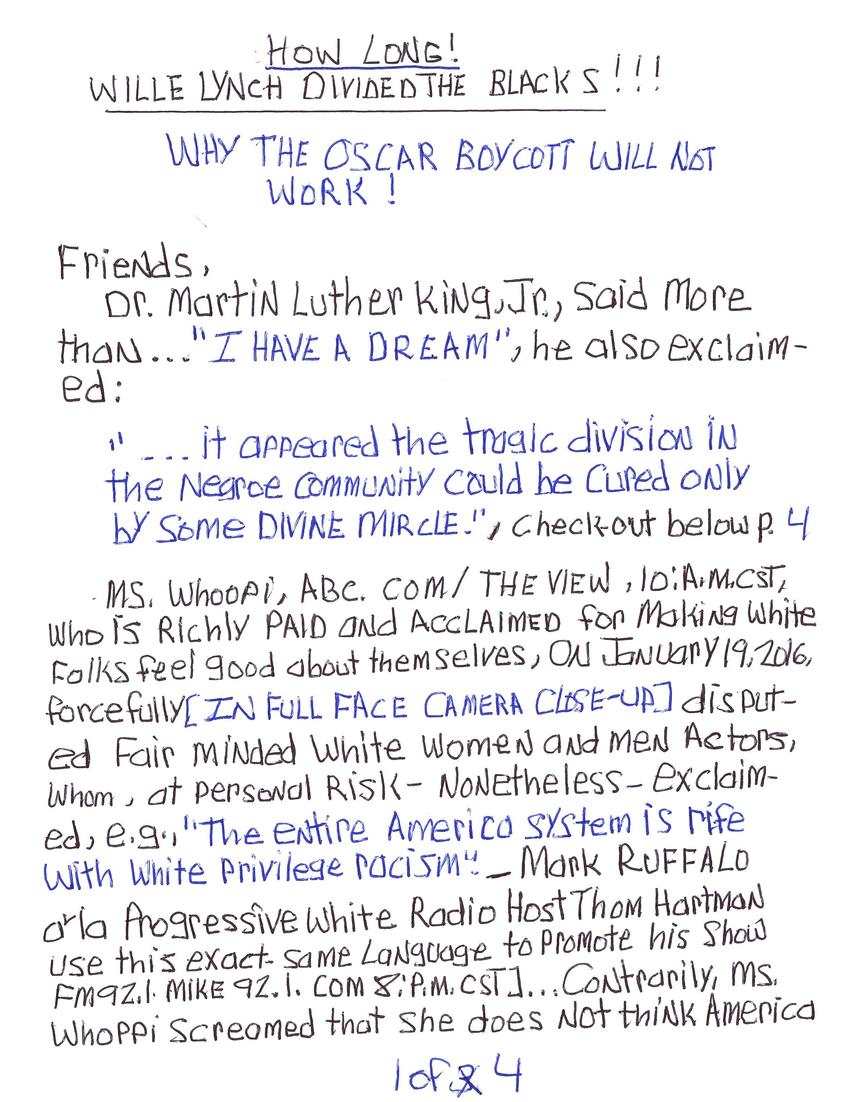 HOW LONG!
WILLE LYNCH DIVIDED THE BLACKS!!!
WHY THE OSCAR BOYCOTT WILL NOT
WORK!
Friends,
Dr. Martin Luther King, Jr., said More
than..."I HAVE A DREAM", he also exclaim-
ed:
"... it appeared the tragic division in
the Negroe community could be cured only
by some DIVINE MIRCLE.", check-out below p. 4
MS. Whoopi, ABC. COM/ THE VIEW, 10:A.M.CST,
who is Richly PAID and ACCLAIMED for Making White
Folks feel good about themselves, ON JaNuary 19, 2016,
forcefully [IN FULL FACE CAMERA CLOSE-UP] disput-
ed Fair minded White Women and men Actors,
whom, at personal Risk- Nonetheless- exclaim-
ed, e.g., "The entire America system is rife
with white privilege racism". _ Mark RUFFALO
or/a Progressive White Radio Host Thom Hartman
use this exact same Language to promote his show
FM92.1. MIKE 92.1. COM 8:P.M. CST]...Contrarily, Ms.
Whoppi screamed that she does Not think America
1 of 4